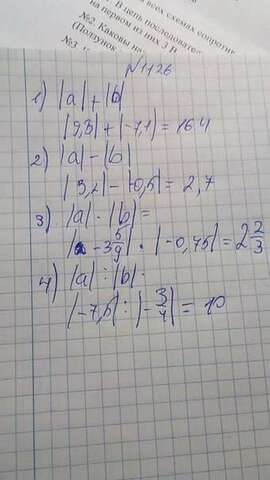 В цепь последовател
всех схемах сопротив
на первом из них 3 В
№2. Каковы на
(Ползунок
№3.
№1126
1) |a| + |b|
|9,3| + |-7,1| = 16.4
2) |a| - |b|
|3,2| - |-0,5| = 2,7
3) |a| · |b| =
|-3 5/9| · |-0,75| = 2 2/3
4) |a| : |b| ·
|-7,5| : |-3/4| = 10